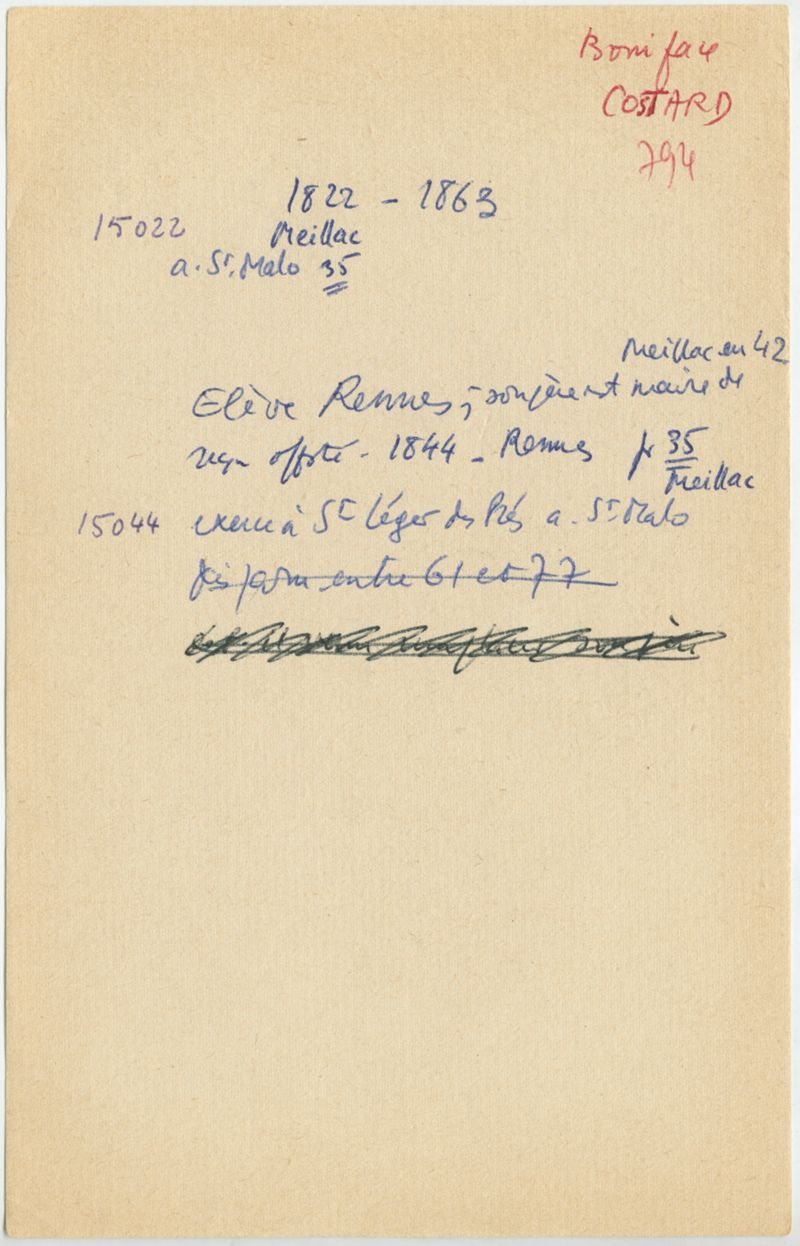 Boniface
COSTARD
794
1822 - 1863
15022 Meillac
a. St. Malo 35
Meillac en 42
Elève Rennes ; son père est maire de
reçu offsté - 1844 - Rennes pr 35
Meillac
15044 exerce à St Léger des Prés a. St Malo
disparu entre 61 et 77